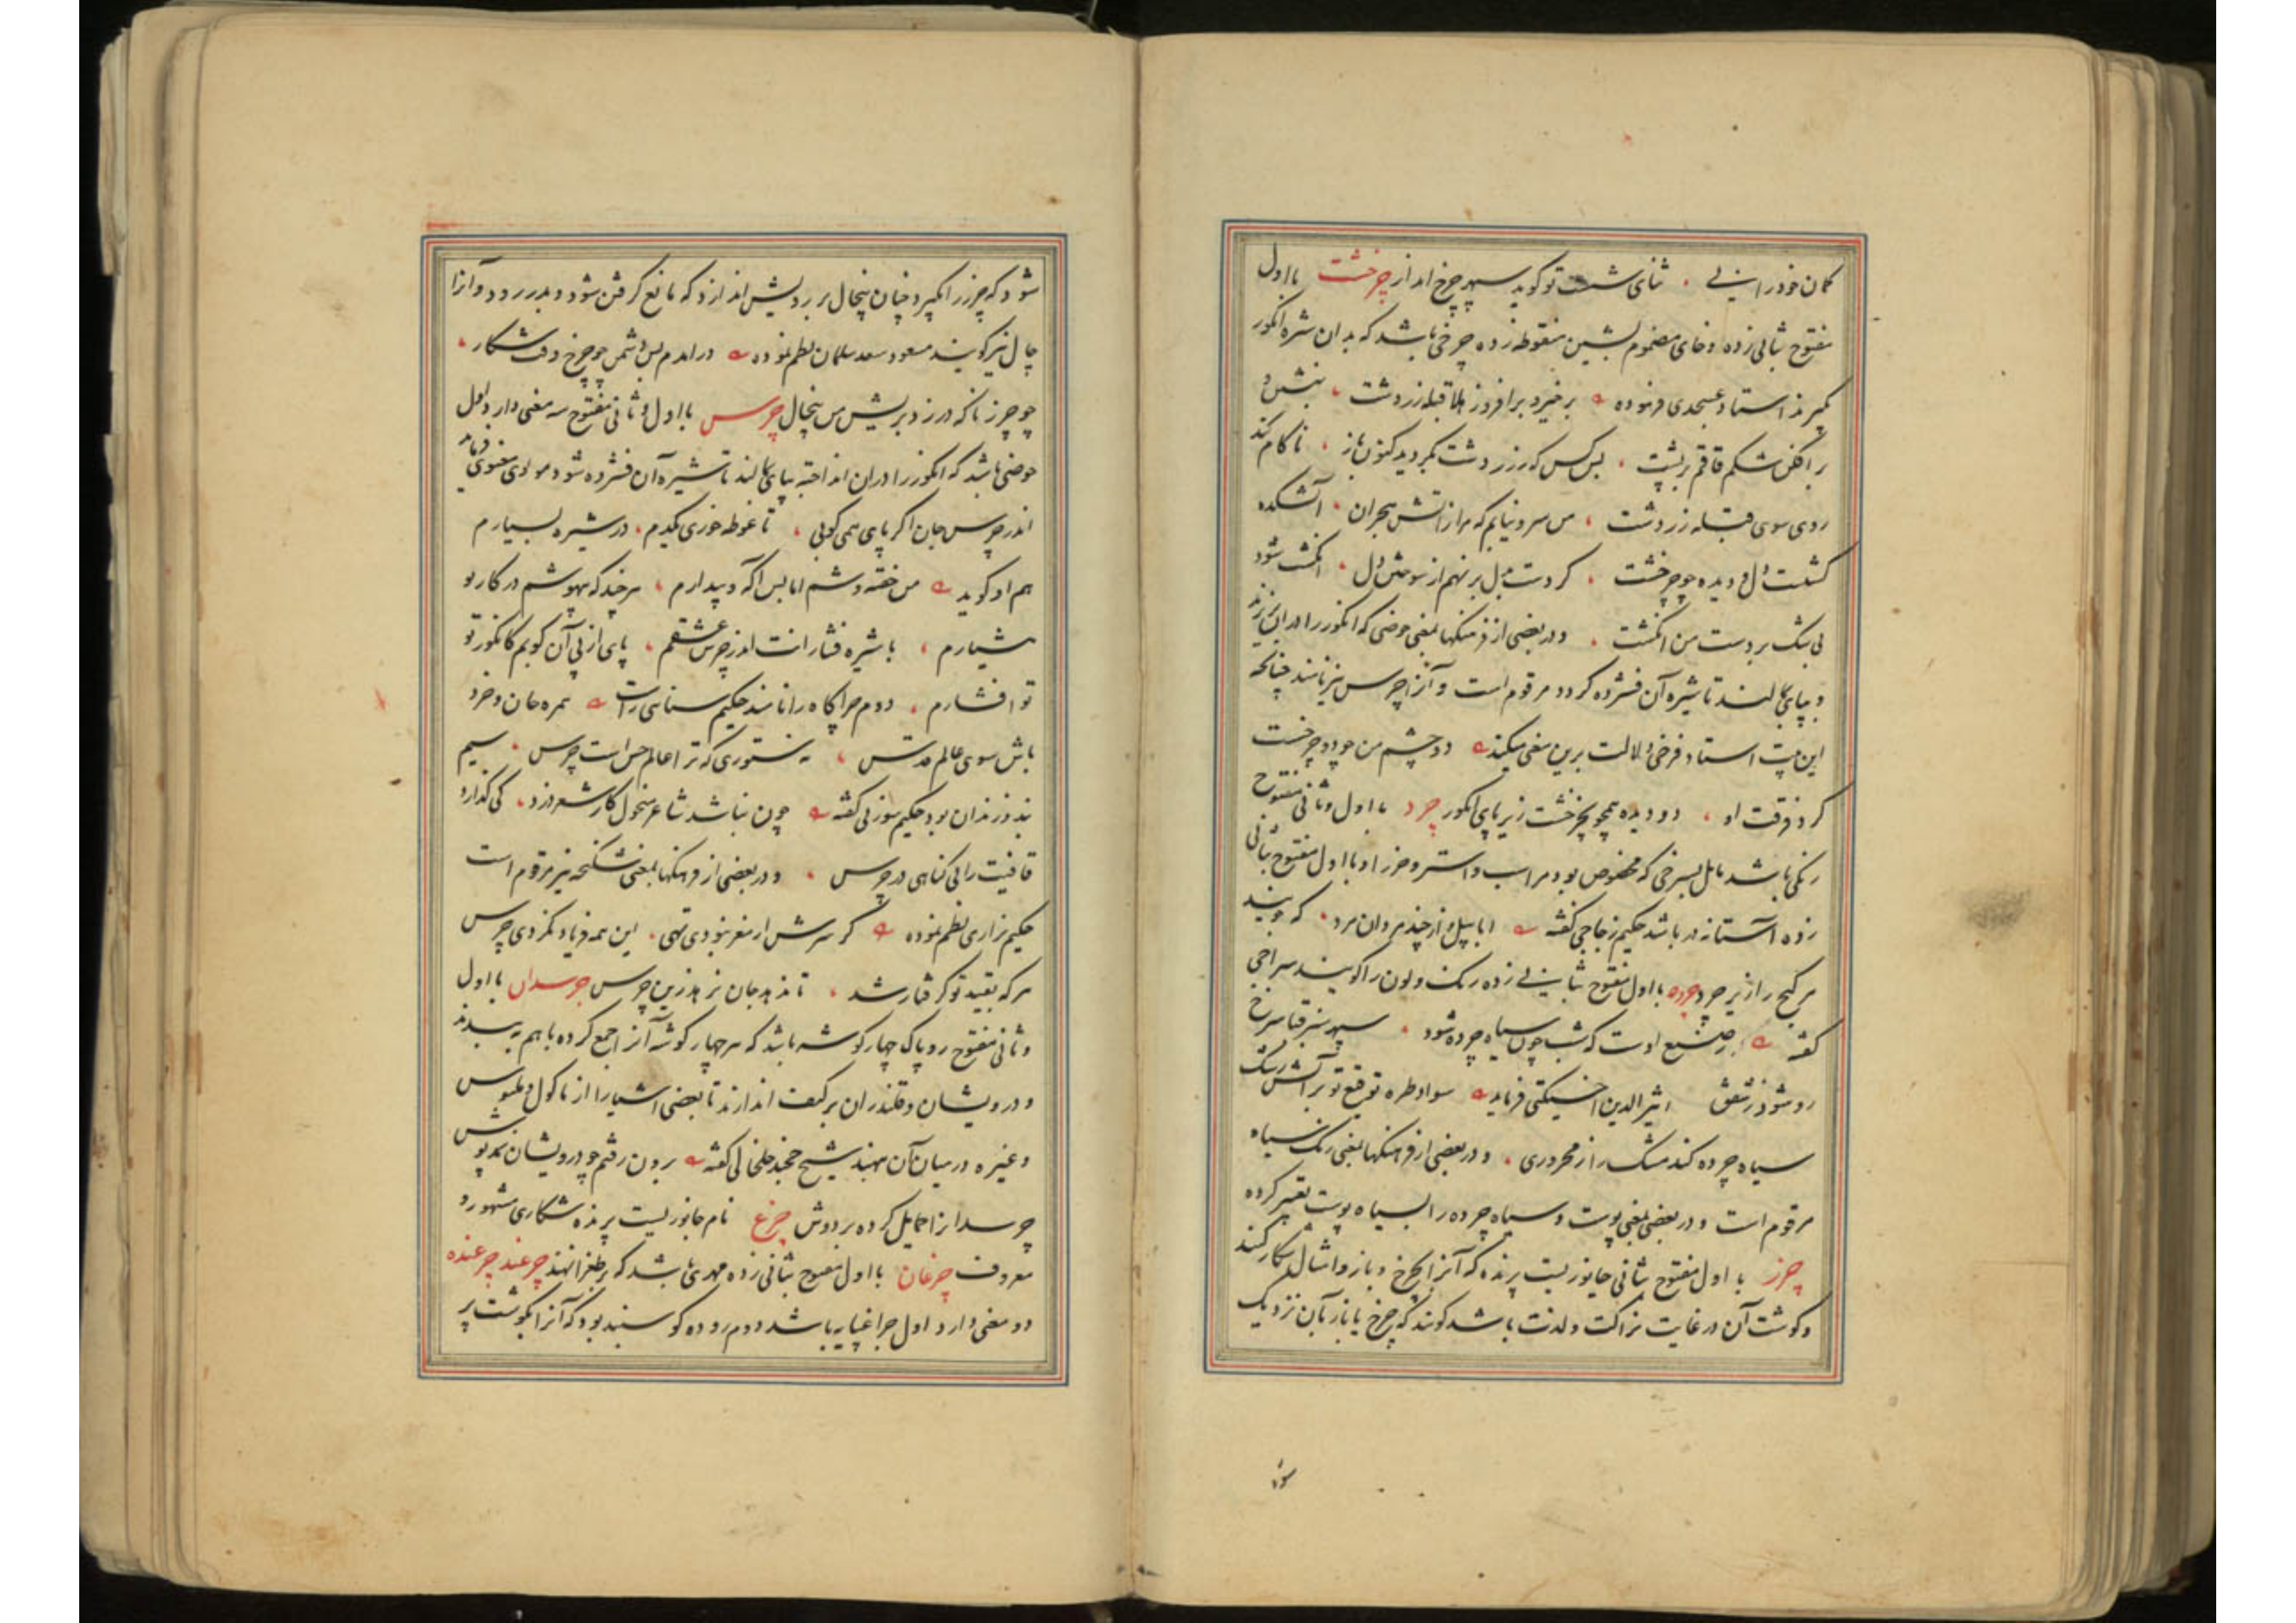 کمان خود را ثنای شست تو کوید سپهر چرخ انداز چرخشت با اول
مفتوح بثانی زده و خای مضموم بشین منقوطه زده چرخی باشد که بدان شیره انکور
کیرند استاد عسجدی فرموده برخیز و برافروز هلا قبله زردشت بنشین و
برافکن شکم قاقم بر پشت بس کس که ز زردشت بکردید کنون باز ناکام کند
روی سوی قبله زردشت من سرد نیابم که مرا ز اتش هجران آتشکده
کشت دل و دیده چو چرخشت کر دست بدل بر نهم از سوختن دل انکشت شود
بی شک بر دست من انکشت و در بعضی از فرهنکها بمعنی حوضی که انکور را در ان ریزند
و بپای بمالند تا شیره آن فشرده کردد مرقوم است و آنرا چرس نیز نامند چنانچه
این بیت استاد فرخی دلالت برین معنی میکند دو چشم من چو دو چرخشت
کرد فرقت او دو دیده همچو بچرخشت زیر پای انکور چرد با اول و ثانی مفتوح
رنکی باشد مایل بسرخی که مخصوص بود مر اسب و استر و خر را و با اول مفتوح بثانی
زده آستانه در باشد حکیم زجاجی کفته که جویند
هر کنج را زیر چرد چرده با اول مفتوح بثانی زده رنک و لون را کویند سراجی
کفته ز صنع اوست که شب چون سیاه چرده شود سپهر سبز قبا سرخ
رو شود ز شفق اثیر الدین اخسیکتی فرماید سواد طره توقیع تو بر آتش رشک
سیاه چرده کند مشک را ز محروری و در بعضی از فرهنکها بمعنی رنک سیاه
مرقوم است و در بعضی بمعنی پوست و سیاه چرده را بسیاه پوست تعبیر کرده
چرز با اول مفتوح بثانی جانوریست پرنده که آنرا بچرخ و باز و امثال شکار کنند
و کوشت آن در غایت نزاکت و لذت باشد کویند که چرخ یا باز بآن نزدیک
شود
شود که چرز را بکیرد چنان پیخال بر رویش اندازد که مانع کرفتن شود و بدر رود و آنرا
چال نیز کویند مسعود سعد سلمان نظم نموده در امدم پس دشمن چو چرخ وقت شکار
چو چرز ناکه در زد بریش من پیخال چرس با اول و ثانی مفتوح سه معنی دارد اول
حوضی باشد که انکور را دران انداخته بپای بمالند تا شیره آن فشرده شود مولوی معنوی فرماید
اندر چرس جان اکر پای همی کوبی تا غوطه خوری یکدم در شیره بسیارم
هم او کوید من خفته وشم اما بس آکه و بیدارم هر چند که بیهوشم در کار تو
هشیارم با شیره فشارانت اندر چرس عشقم پای از پی آن کوبم کانکور تو
تو افشارم دوم چراکاه را نامند حکیم سنایی راست همره جان و خرد
باش سوی عالم قدس نه ستوری که ترا عالم حس است چرس سیم
بند و زندان بود حکیم سوزنی کفته چون نباشد شاعر منحول کار شعر دزد کی کذارد
قافیت را بی کناهی در چرس و در بعضی از فرهنکها بمعنی شکنجه نیز مرقوم است
حکیم نزاری نظم نموده کر سرش از مغز نبودی تهی این همه فریاد نکردی چرس
هر که بقید تو کرفتار شد تا ندهد جان نرهد زین چرس چرسدان با اول
و ثانی مفتوح روپاک چهار کوشه باشد که هر چهار کوشه آنرا جمع کرده باهم بدوزند
و درویشان و قلندران بر کتف اندازند تا بعضی اشیا را از ماکول و ملبوس
و غیره در میان آن نهند شیخ خلخالی کفته برون رفتم چو درویشان نمد پوش
چرسدانرا حمایل کرده بر دوش چرغ نام جانوریست پرنده شکاری مشهور و
معروف چرغان با اول مفتوح بثانی زده مهری باشد که بر طغرا نهند چرغند چرغنده
دو معنی دارد اول چراغپایه باشد دوم روده کوسپند بود که آنرا بکوشت پر